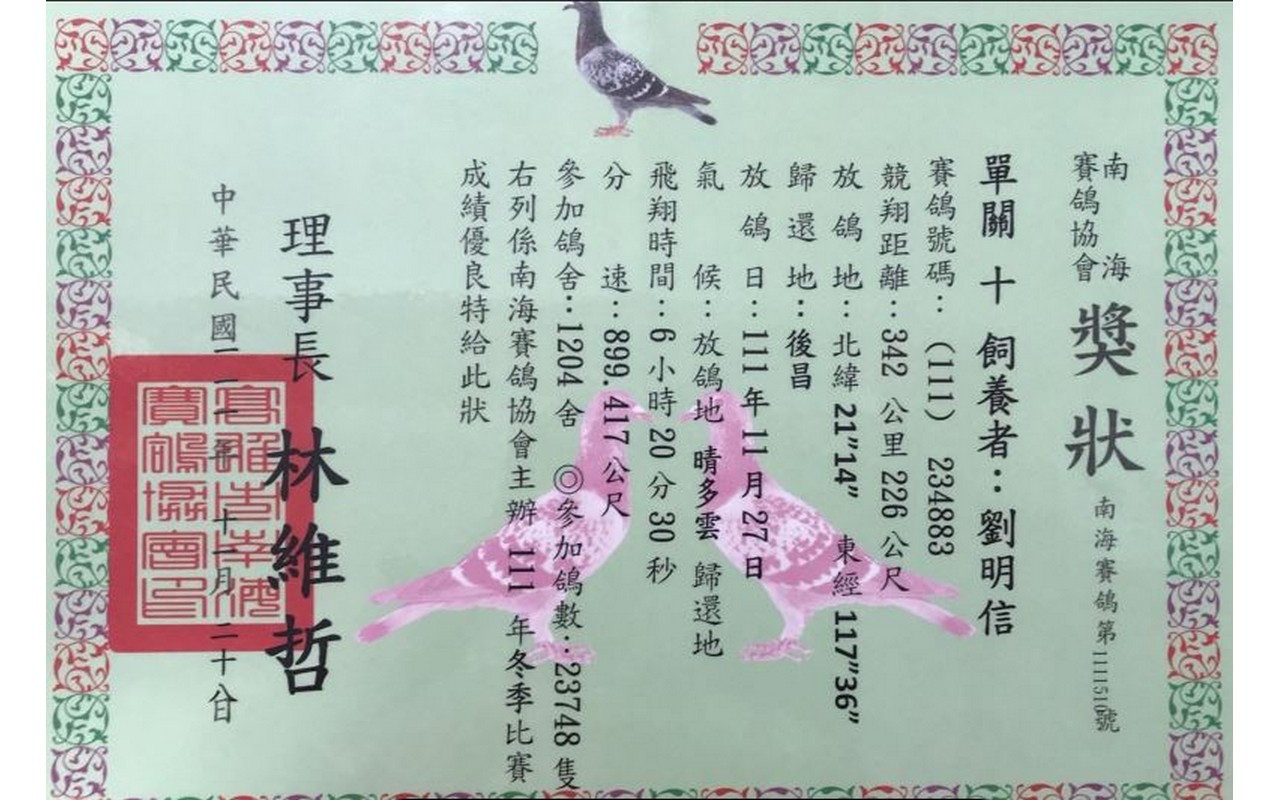 南海賽鴿協會
獎狀
南海賽鴿第1111510號
單關 十 飼養者：劉明信
賽鴿號碼：(111) 234883
競翔距離：342 公里 226 公尺
放鴿地：北緯 21”14” 東經 117”36”
歸還地：後昌
放鴿日：111 年 11 月 27 日
氣候：放鴿地 晴多雲 歸還地
飛翔時間：6 小時 20 分 30 秒
分速：899.417 公尺
參加鴿舍：1204 舍 ◎參加鴿數：23748 隻
右列係南海賽鴿協會主辦 111 年冬季比賽
成績優良特給此狀
理事長 林維哲
中華民國一一一年十一月二十八日